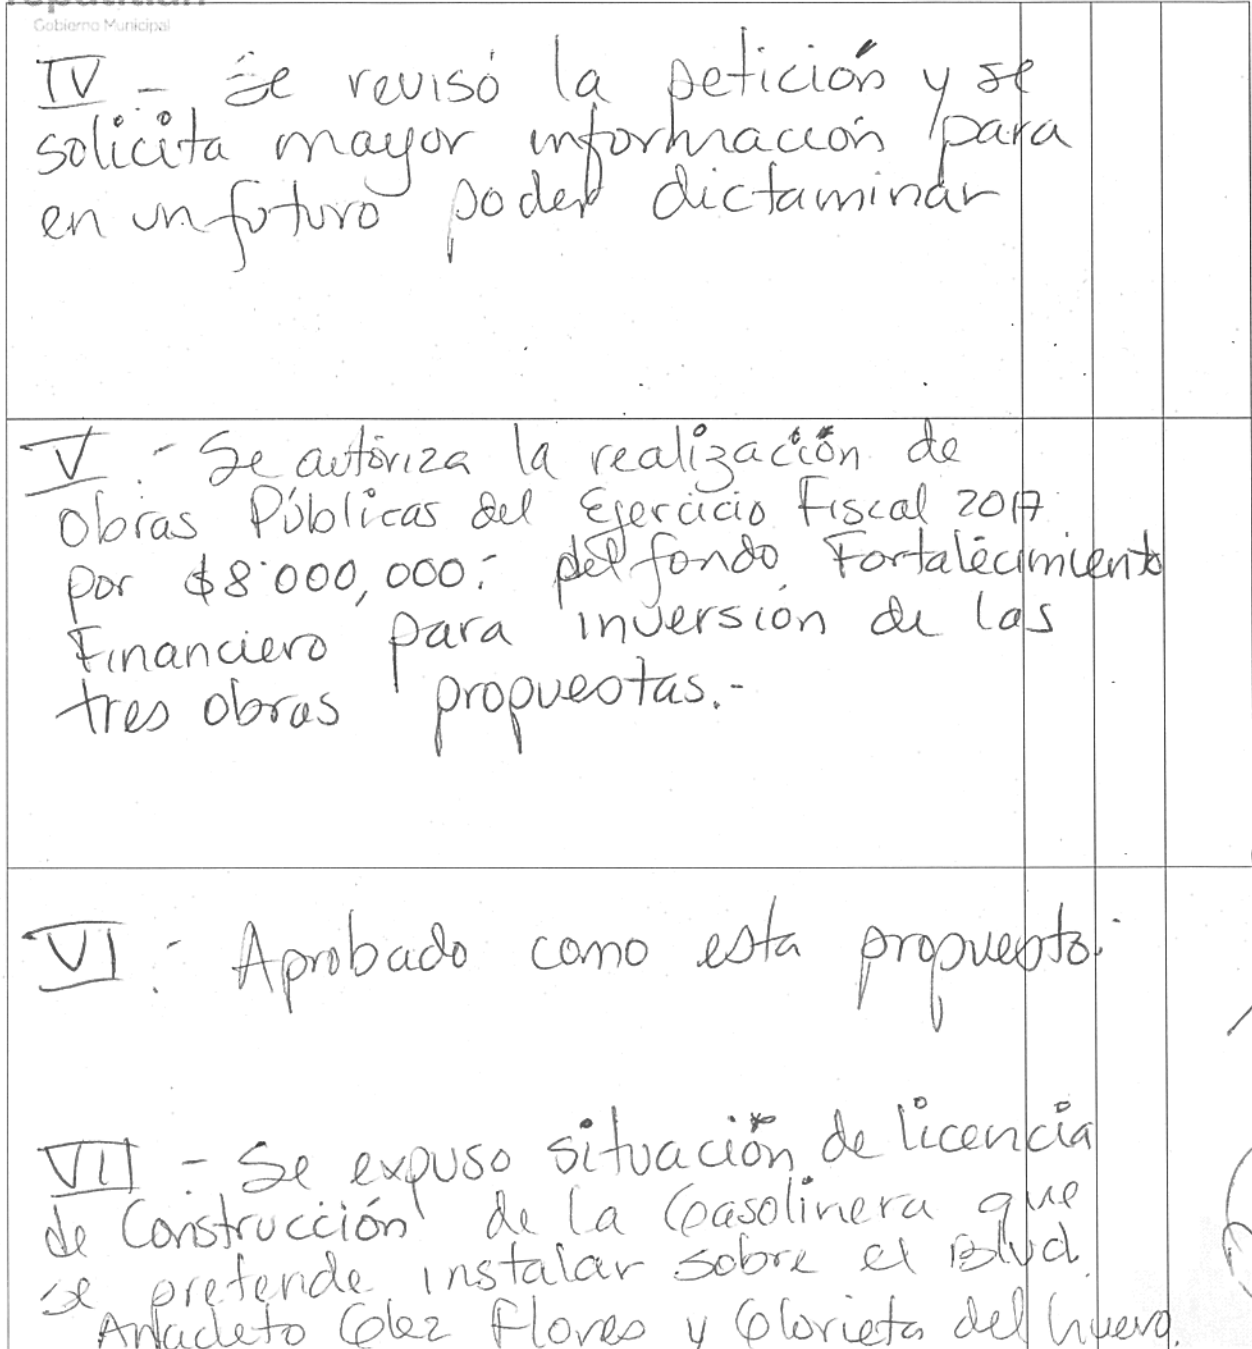 Gobierno Municipal
IV - Se revisó la petición y se
solicita mayor información para
en un futuro poder dictaminar
V.- Se autoriza la realización de
Obras Públicas del Ejercicio Fiscal 2017
por $8'000,000.- del fondo Fortalecimiento
Financiero para inversión de las
tres obras propuestas.-
VI.- Aprobado como esta propuesto.-
VII - Se expuso situación de licencia
de Construcción de la Gasolinera que
se pretende instalar sobre el Blvd.
Anacleto Glez Flores y Glorieta del huevo.